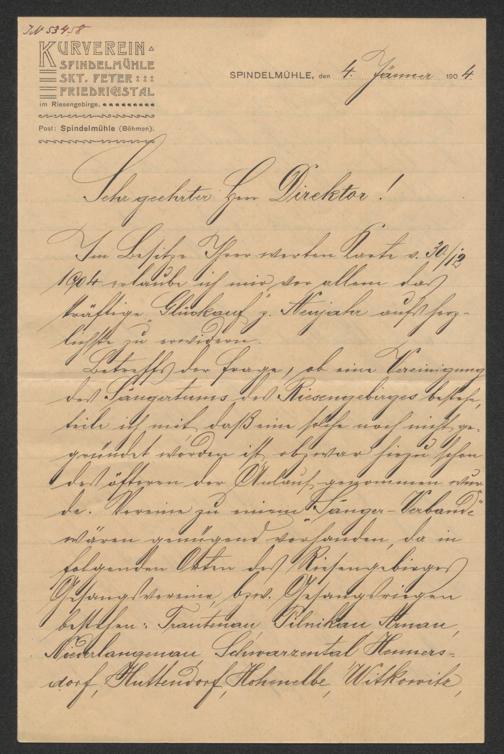 JN 53458
KURVEREIN
SPINDELMÜHLE
SKT. PETER
FRIEDRICHSTAL
im Riesengebirge.
Post: Spindelmühle (Böhmen).
SPINDELMÜHLE, den 4. Jänner 1904.
Sehr geehrter Herr Direktor!
Im Besitze Ihrer werten Karte v. 30/12
1904 erlaube ich mir vor allem das
kräftige „Glückauf“ z. Neujahr aufs herz-
lichste zu erwidern.
Betreffs der Frage, ob eine Vereinigung
des Sängertums des Riesengebirges bestehe,
teile ich mit, daß eine solche noch nicht ge-
gründet worden ist, obzwar hiezu schon
des öfteren der Anlauf genommen wur-
de. Vereine zu einem „Sänger-Verband“
wären genügend vorhanden, da in
folgenden Orten des Riesengebirges
Gesangsvereine, bzw. Gesangsriegen
bestehen: Trautenau, Pilnikau, Arnau,
Niederlangenau, Schwarzental, Henners-
dorf, Huttendorf, Hohenelbe, Witkowitz,